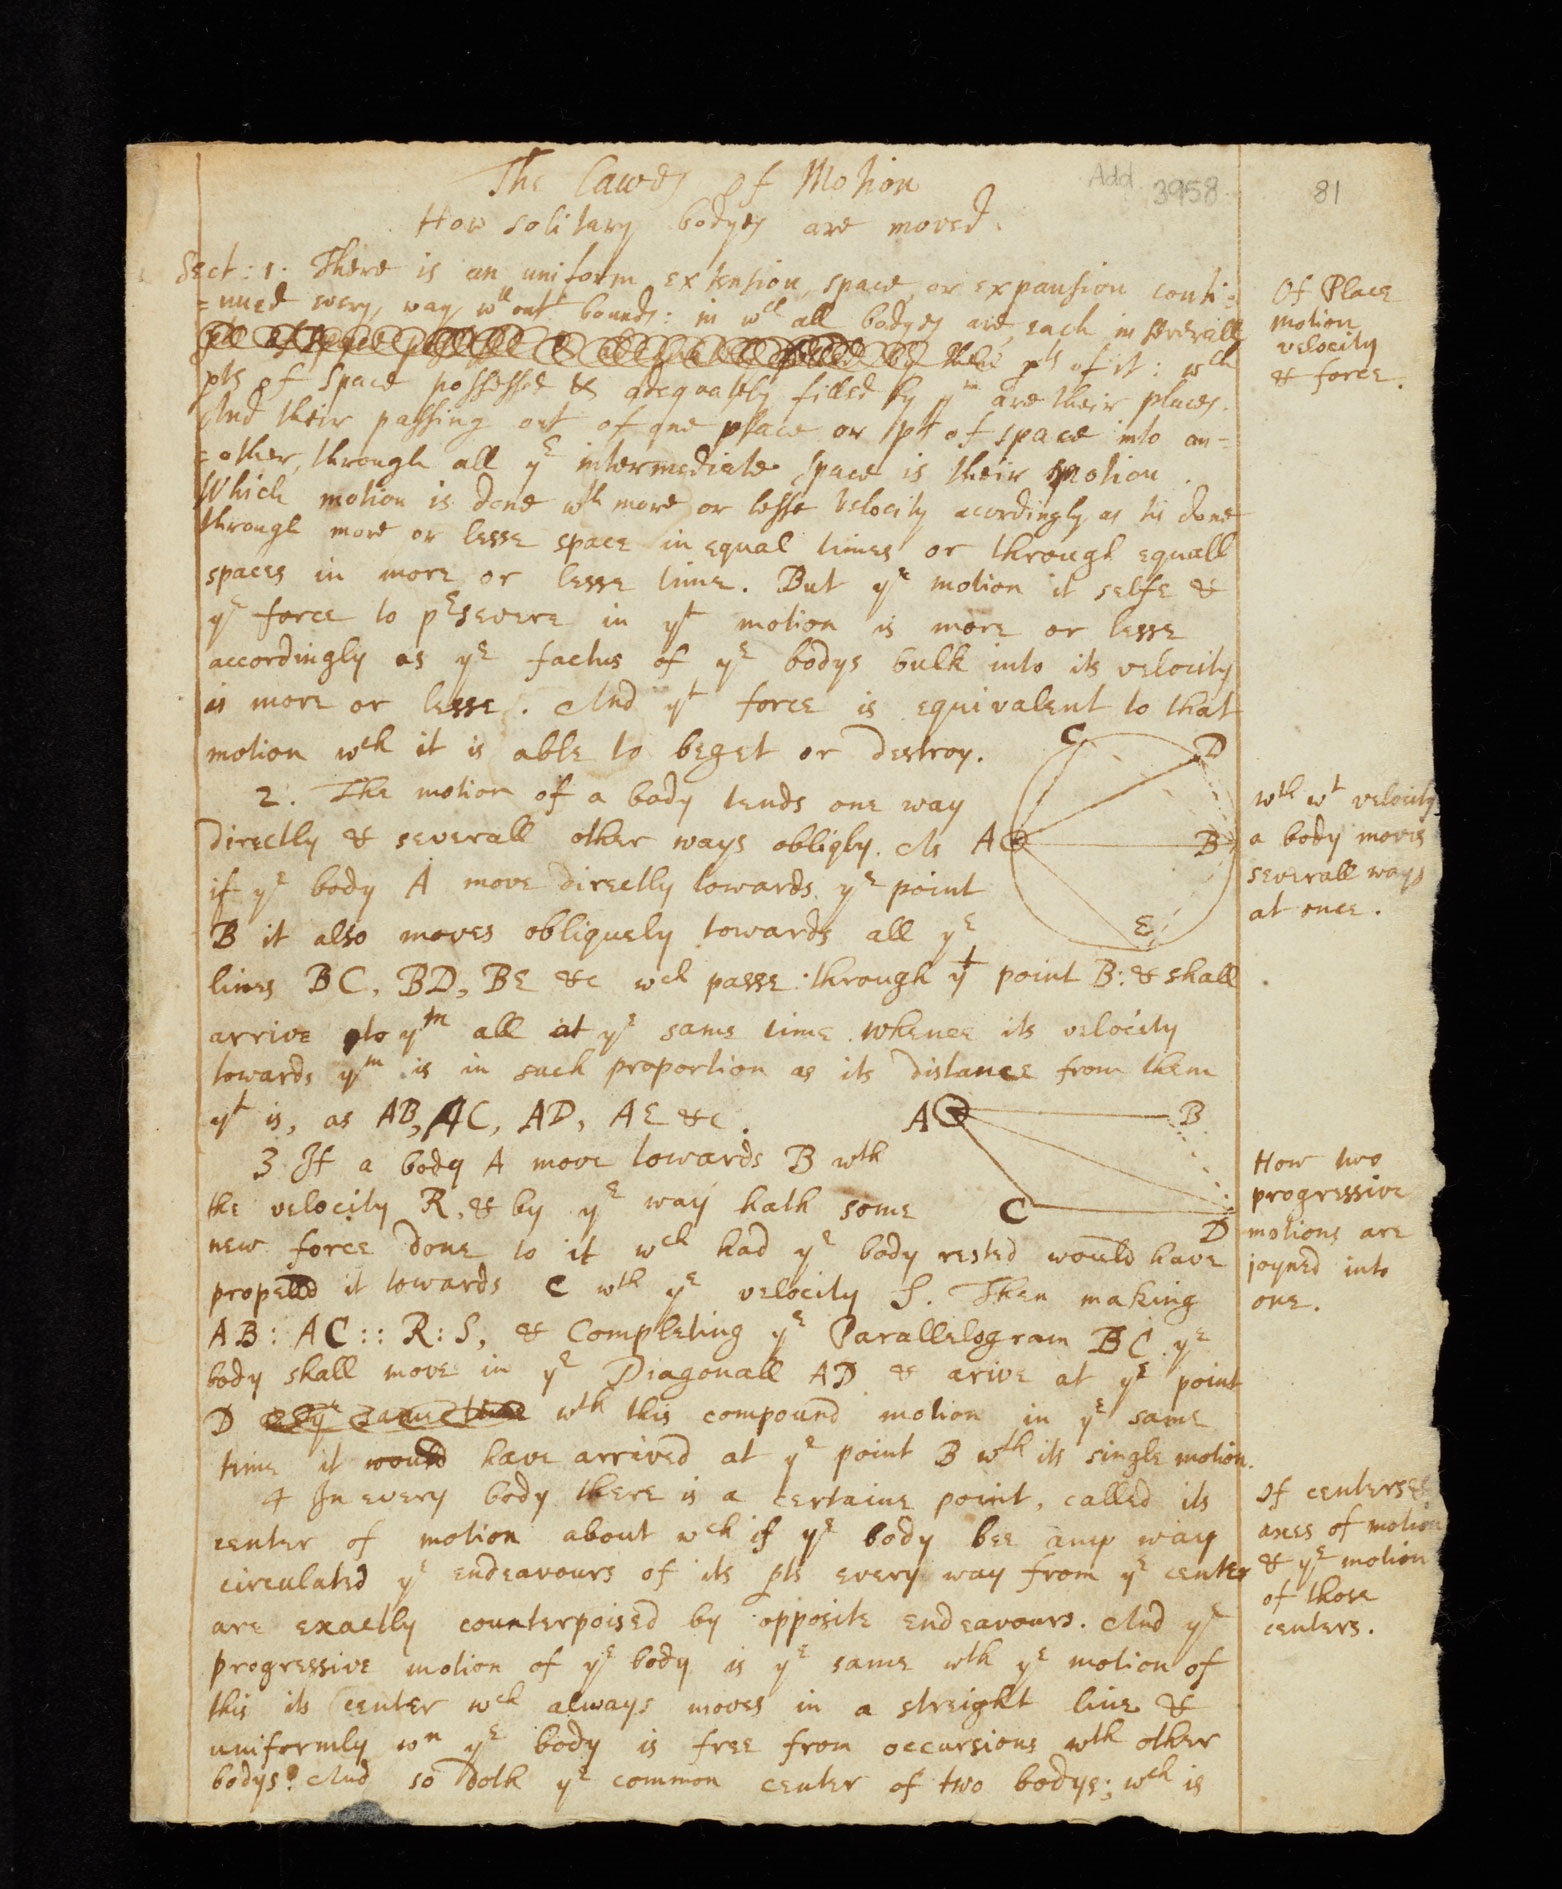 The Lawes of Motion
Add 3958
81
How solitary bodyes are moved.
Sect: 1. There is an uniform extension, space, or expansion conti-
=nued every way wthout bounds: in wch all bodyes are, each in severall
pts of it: wch
pts of Space possessed & adequately filled by ym are their places.
And their passing out of one place or pt of space into an-
=other, through all ye intermediate Space is their motion.
Which motion is done wth more or lesse Velocity acordingly as tis done
through more or lesse space in equal times or through equall
spaces in more or lesse time. But ye motion it selfe &
ye force to persevere in yt motion is more or lesse
accordingly as ye factus of ye bodys bulk into its velocity
is more or lesse. And yt force is equivalent to that
motion wch it is able to beget or destroy.
Of Place
motion
velocity
& force.
2. The motion of a body tends one way
directly & severall other ways obliqly. As
if ye body A move directly towards ye point
B it also moves obliquely towards all ye
lines BC, BD, BE &c wch passe through yt point B: & shall
arrive to ym all at ye same time. Whence its velocity
towards ym is in such proportion as its distance from them
yt is, as AB, AC, AD, AE &c.
C
D
A
B
E
wth wt velocity
a body moves
severall ways
at once.
3 If a body A move towards B wth
the velocity R, & by ye way hath some
new force done to it wch had ye body rested would have
propelled it towards C wth ye velocity S. Then making
AB: AC:: R: S, & Completing ye Parallelogram BC ye
body shall move in ye Diagonall AD & arive at ye point
D at ye same time wth this compound motion in ye same
time it would have arrived at ye point B wth its single motion.
A
B
C
D
How two
progressive
motions are
joyned into
one.
4 In every body there is a certaine point, called its
center of motion about wch if ye body bee any way
circulated ye endeavours of its pts every way from ye center
are exactly counterpoised by opposite endeavours. And ye
progressive motion of ye body is ye same wth ye motion of
this its center wch always moves in a streight line &
uniformly wn ye body is free from occursions wth other
bodys. And so doth ye common center of two bodys; wch is
Of centers &
axes of motion
& ye motion
of those
centers.